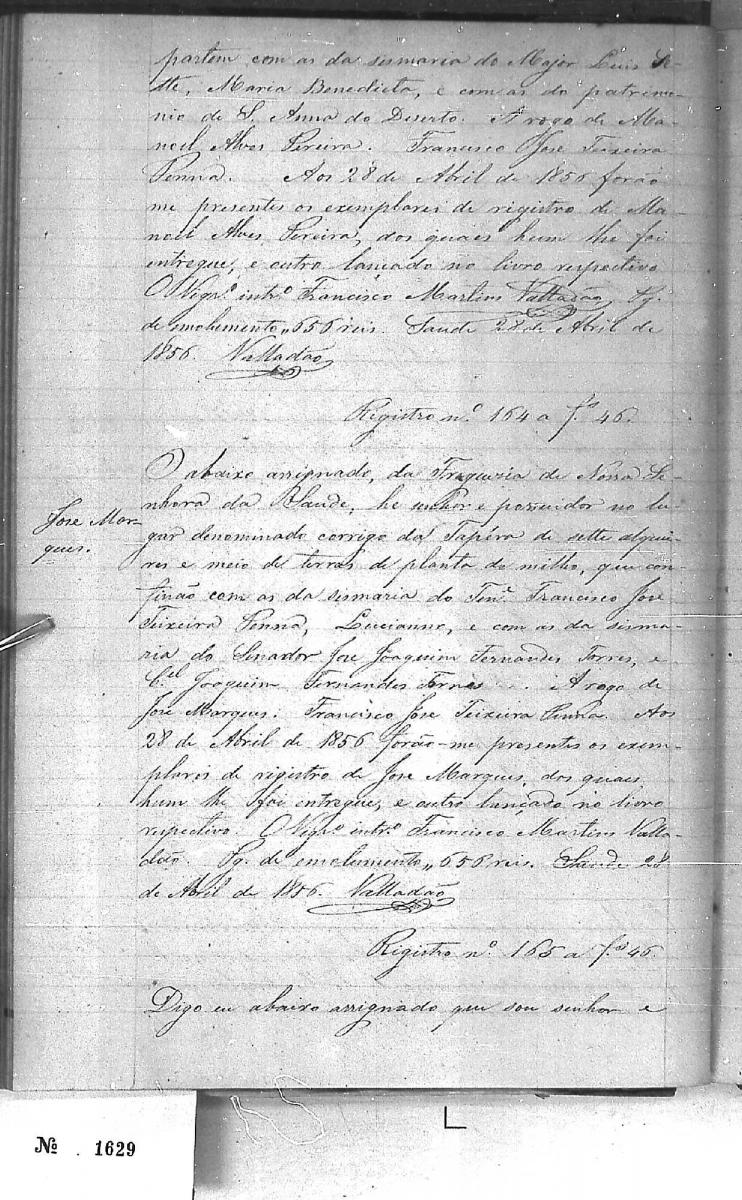 partem com as da sismaria do Major Luis Se-
tte, Maria Benedicta, e com as do patrimo-
nio de S. Anna do Deserto. A rogo de Ma-
noel Alves Pereira. Francisco José Teixeira
Penna. Aos 28 de Abril de 1856 forão-
me presentes os exemplares de registro de Ma-
noel Alves Pereira, dos quais hum lhe foi
entregue, e outro lançado no livro respectivo
O Vigr.º intr.º Francisco Martins Valladão, Pg.
de emolumento,, 656 reis. Saude 28 de Abril de
1856. Valladão
Registro n.º 164 a f.s 46.
O abaixo assignado, da Freguezia de Nossa Se-
nhora da Saude, he senhor e possuidor no lu-
gar denominado corrigo da Tapéra de sette alquei-
res e meio de terras de planta do milho, que con-
finão com as da sismaria do Ten.e Francisco José
Teixeira Penna, Lucianno, e com as da sisma-
ria do Senador José Joaquim Fernandes Torres, e
C.el Joaquim Fernandes Torres. A rogo de
José Marques: Francisco José Teixeira Penna. Aos
28 de Abril de 1856 forão-me presentes os exem-
plares de registro de José Marques, dos quais
hum lhe foi entregue, e outro lançado no livro
respectivo. O Vigr.º intr.º Francisco Martins Valla-
dão. Pg. de emolumento,, 656 reis. Saude 28
de Abril de 1856. Valladão
Registro n.º 165 a f.s 46
Digo eu abaixo assignado que sou senhor e
José Mar-
ques.
Nº 1629